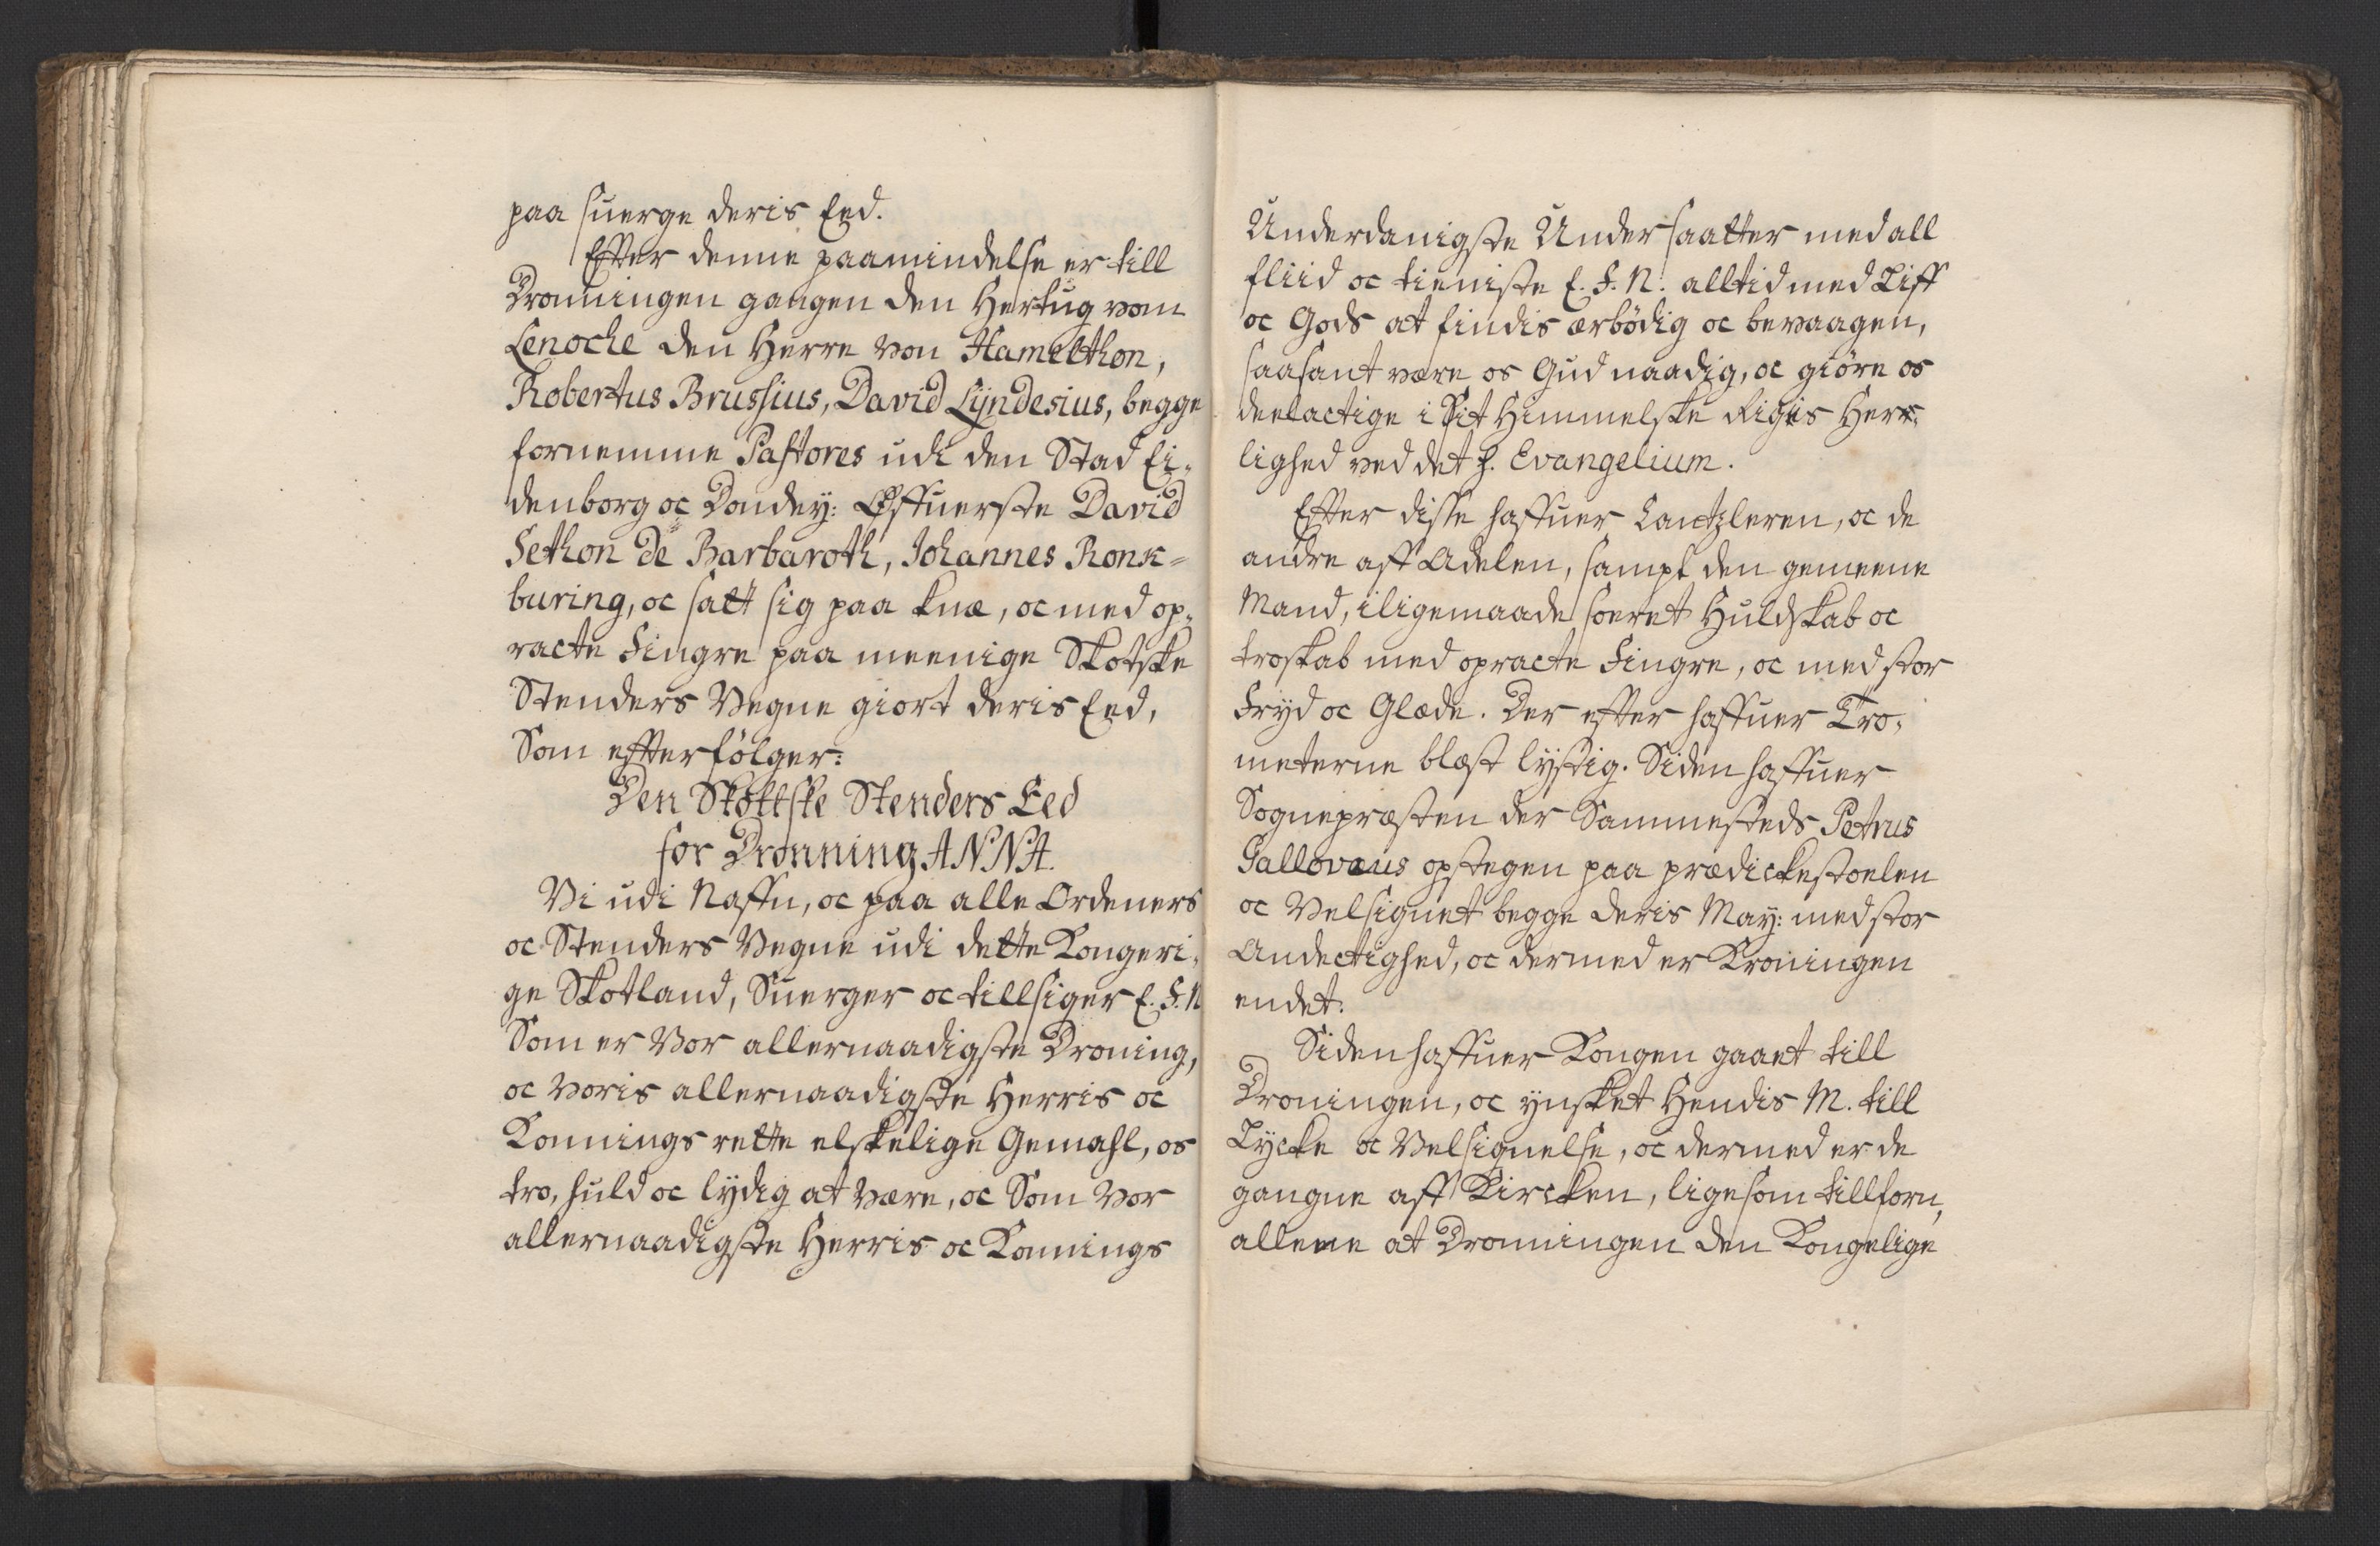 paa suerge deris Eed.
Effter denne paamindelse er till
Dronningen gangen den Hertug von
Lenoche den Herre von Hamelthon,
Robertus Brussius, David Lyndesius, begge
fornemme Pastores udi den Stad Ei-
denborg oc Dondey: Øffuerste David
Sethon de Barbaroth, Johannes Ronk=
buring, oc satt sig paa knæ, oc med op-
racte Fingre paa meenige Skotske
Stenders Vegne giort deris Eed,
Som effterfölger:
Den Skottske Stenders Eed
for Dronning ANNA.
Vi udi Naffn, oc paa alle Ordeners
oc Stenders Vegne udi dette Kongeri-
ge Skotland, Suerger oc tillsiger E. F. N
Som er Vor allernaadigste Droning,
oc Voris allernaadigste Herris oc
Konnings rette elskelige Gemahl, os
tro, huld oc lydig at være, oc Som Vor
allernaadigste Herris oc Konnings
Underdanigste Undersaatter med all
fliid oc tieniste E. F. N. alltid med Liff
oc Gods at findis ærbödig oc bevaagen,
saasant være os Gud naadig, oc giöre os
deelactige i Sit Himmelske Rigis Herr-
lighed ved det H. Evangelium.
Effter disse haffuer Cantzleren, oc de
andre aff Adelen, sampt den gemeene
Mand, iligemaade soeret Huldskab oc
troskab med opracte Fingre, oc med stor
Fryd oc Glæde. Der effter haffuer Tro-
meterne blæst lystig. Siden haffuer
Sognepræsten der Sammesteds Petrus
Gallovæus opstegen paa prædickestoelen
oc Velsignet begge deris May: med stor
Andectighed, oc dermed er Kroningen
endet.
Siden haffuer Kongen gaaet till
Droningen, oc ynsket Hendis M. till
Lycke oc Velsignelse, oc dermed er de
gangne aff Kircken, ligesom tillforn,
allene at Dronningen den Kongelige